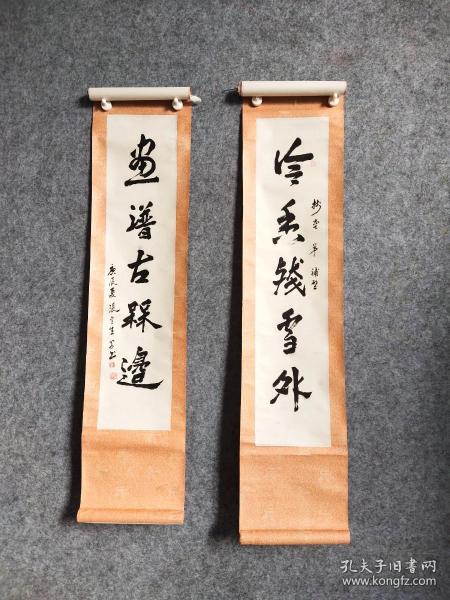 冷香殘雪外
畫譜古槑邊
庚辰夏
孔夫子旧书网
www.kongfz.com